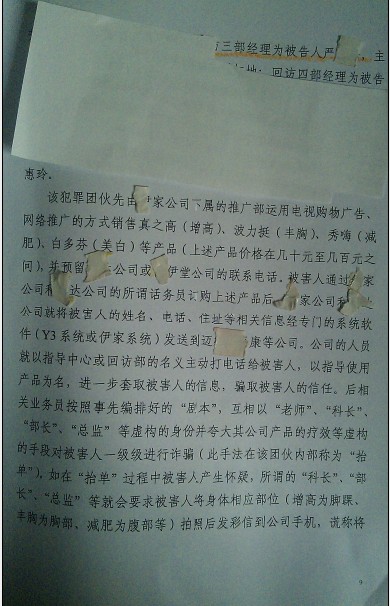 三部经理为被告人严 主
回访四部经理为被告
惠玲。
该犯罪团伙先由伊家公司下属的推广部运用电视购物广告、
网络推广的方式销售真之高（增高）、波力挺（丰胸）、秀嗨（减
肥）、白多芬（美白）等产品（上述产品价格在几十元至几百元之
间），并预留 公司或 伊堂公司的联系电话。被害人通过 家
公司和 达公司的所谓话务员订购上述产品后， 家公司和
公司就将被害人的姓名、电话、住址等相关信息经专门的系统软
件（Y3系统或伊家系统）发送到迈 康等公司。公司的人员
就以指导中心或回访部的名义主动打电话给被害人，以指导使用
产品为名，进一步套取被害人的信息，骗取被害人的信任。后相
关业务员按照事先编排好的“剧本”，互相以“老师”、“科长”、
“部长”、“总监”等虚构的身份并夸大其公司产品的疗效等虚构
的手段对被害人一级级进行诈骗（此手法在该团伙内部称为“抬
单”），如在“抬单”过程中被害人产生怀疑，所谓的“科长”、“部
长”、“总监”等就会要求被害人将身体相应部位（增高为脚踝、
丰胸为胸部、减肥为腹部等）拍照后发彩信到公司手机，谎称将
9